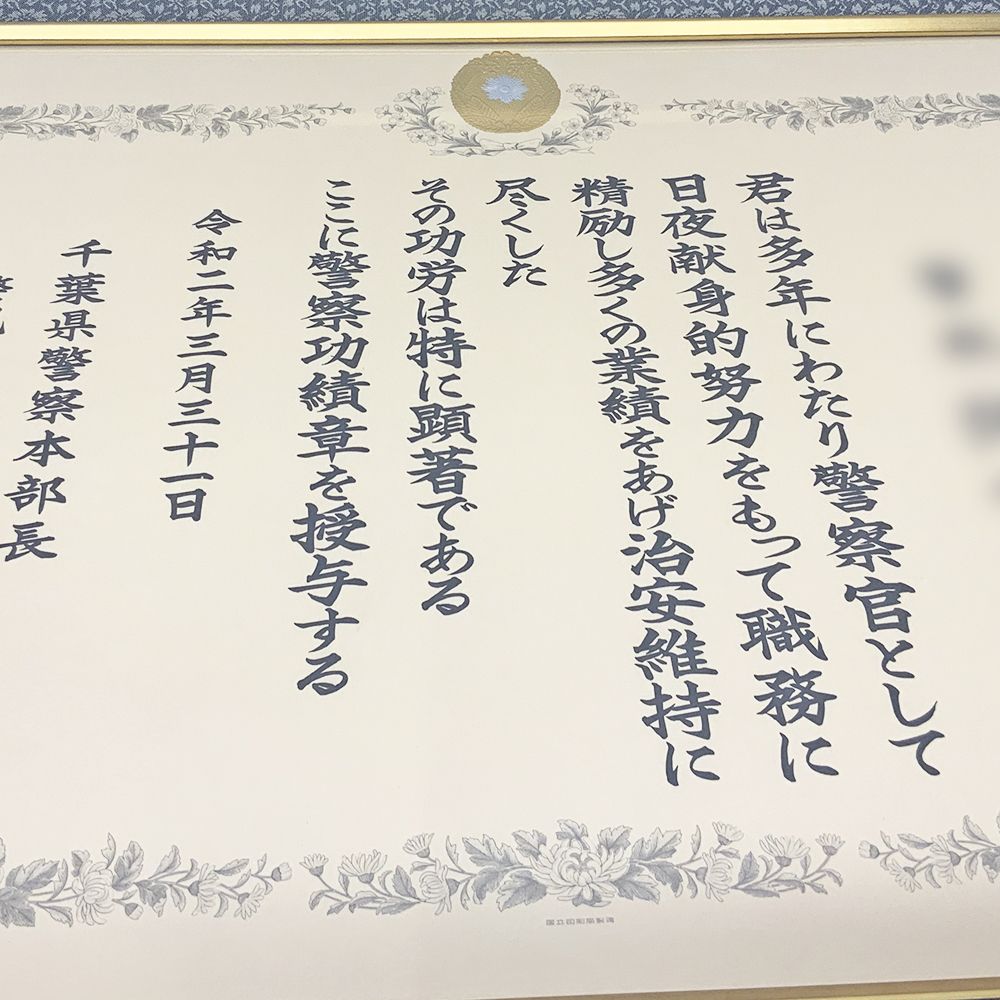 君は多年にわたり警察官として
日夜献身的努力をもって職務に
精励し多くの業績をあげ治安維持に
尽くした
その功労は特に顕著である
ここに警察功績章を授与する
令和二年三月三十一日
千葉県警察本部長